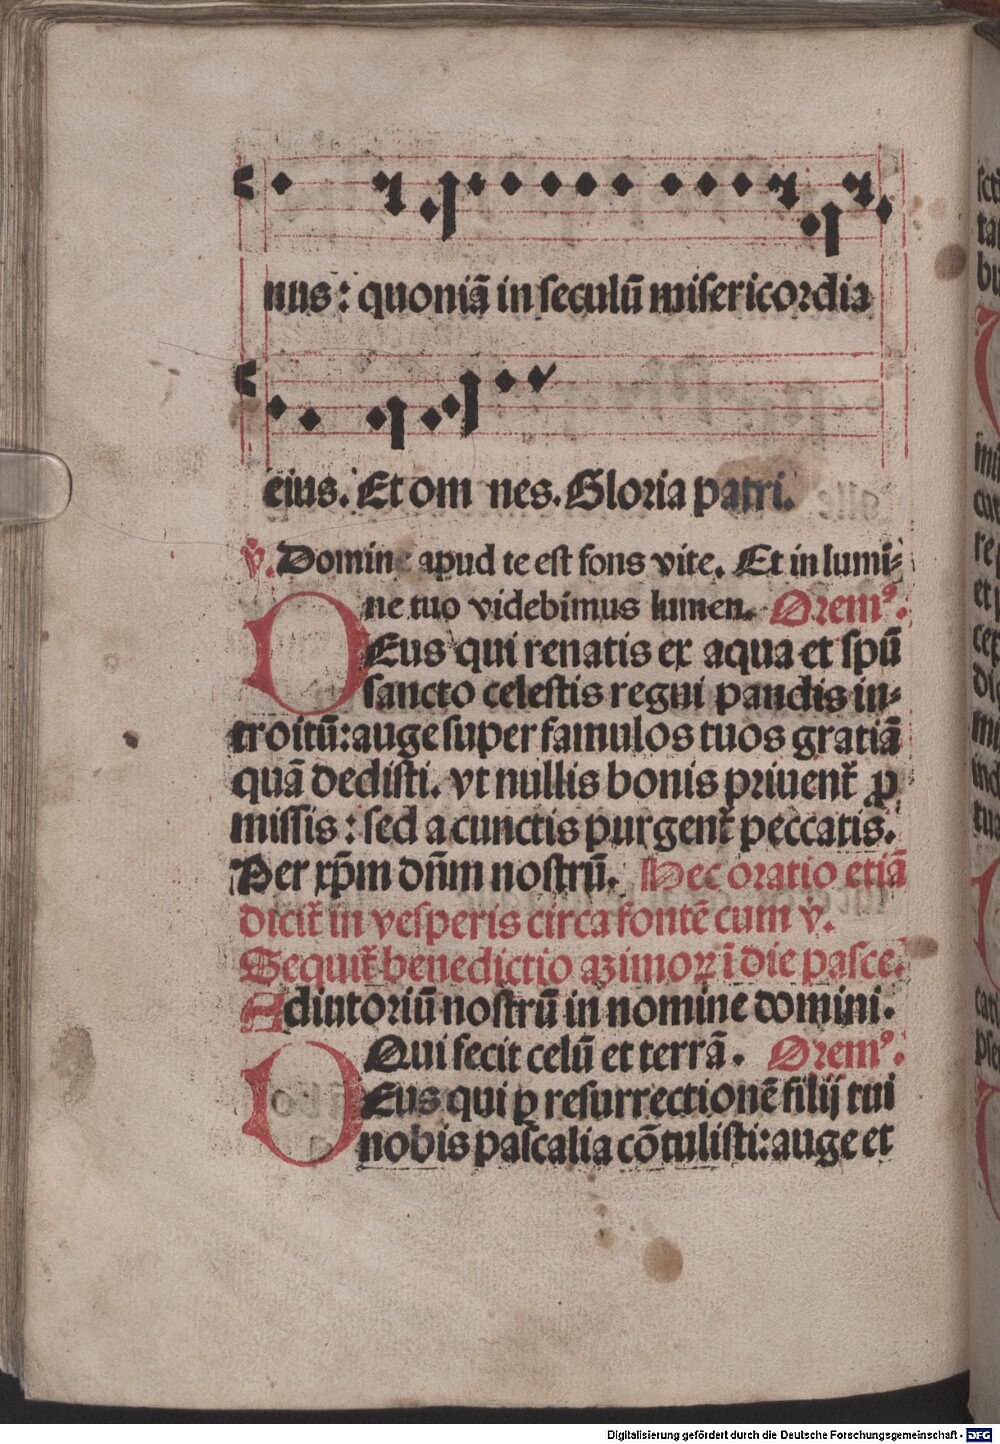 nus: quoniā in seculū misericordia
eius. Et om nes. Gloria patri.
v̄. Domine apud te est fons vite. Et in lumi-
ne tuo videbimus lumen. Oremꝰ.
DEus qui renatis ex aqua et spū
sancto celestis regni pandis in-
troitū: auge super famulos tuos gratiā
quā dedisti. vt nullis bonis priuent᷑ ꝓ
missis: sed a cunctis purgent᷑ peccatis.
Per xp̄m dn̄m nostrū. Hec oratio etiā
dicit᷑ in vesperis circa fontē cum v.
Sequit᷑ benedictio azimoꝝ ī die pasce.
Adiutoriū nostrū in nomine domini.
Qui fecit celū et terrā. Oremꝰ.
DEus qui ꝑ resurrectionē filij tui
nobis pascalia cōtulisti: auge et
Digitalisierung gefördert durch die Deutsche Forschungsgemeinschaft - DFG